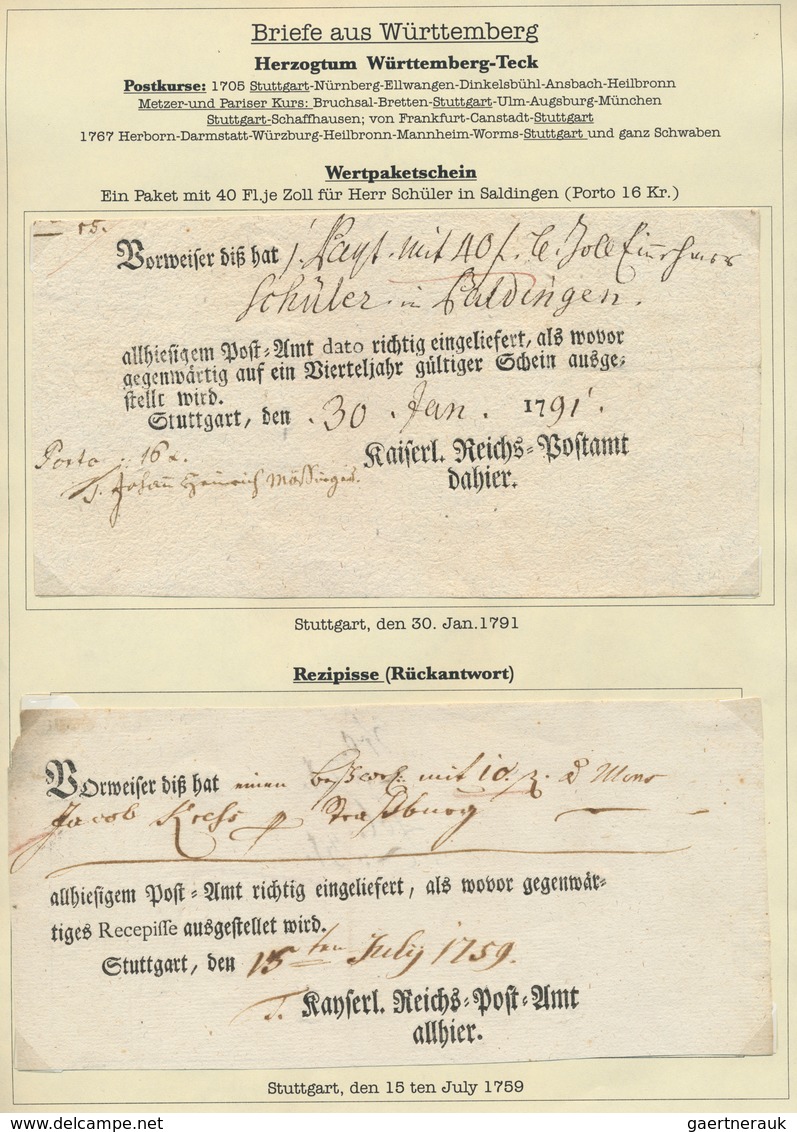 Briefe aus Württemberg
Herzogtum Württemberg-Teck
Postkurse: 1705 Stuttgart-Nürnberg-Ellwangen-Dinkelsbühl-Ansbach-Heilbronn
Metzer-und Pariser Kurs: Bruchsal-Bretten-Stuttgart-Ulm-Augsburg-München
Stuttgart-Schaffhausen; von Frankfurt-Canstadt-Stuttgart
1767 Herborn-Darmstatt-Würzburg-Heilbronn-Mannheim-Worms-Stuttgart und ganz Schwaben
Wertpaketschein
Ein Paket mit 40 Fl.je Zoll für Herr Schüler in Saldingen (Porto 16 Kr.)
15.
Vorweiser diß hat 1. Paqt. mit 40 f. Zoll Einnehmer
Schüler in Baldingen.
allhiesigem Post-Amt dato richtig eingeliefert, als wovor
gegenwärtig auf ein Vierteljahr gültiger Schein ausge-
stellt wird.
Stuttgart, den 30 Jan. 1791.
Porto 16 x.
Kaiserl. Reichs-Postamt
T. Johann Heinrich
dahier.
Stuttgart, den 30. Jan.1791
Rezipisse (Rückantwort)
VOrweiser diß hat einen mit 10. Mons
Jacob Kress Straßburg
allhiesigem Post-Amt richtig eingeliefert, als wovor gegenwär-
tiges Recepisse ausgestellet wird.
Stuttgart, den 15ten July 1759.
T. Kayserl. Reichs-Post-Amt
allhier.
Stuttgart, den 15 ten July 1759
gaertnerauk